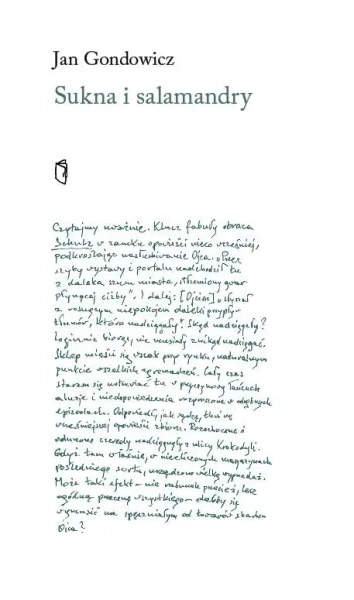 Jan Gondowicz
Sukna i salamandry
Czytajmy uważnie. Klucz fabuły obraca
Schulz w zamku opowieści nieco wcześniej,
podkreślając nasłuchiwanie Ojca. „Przez
szyby wystawy i portalu nadchodził tu
z daleka szum miasta, stłumiony gwar
płynącej ciżby”. I dalej: [Ojciec] „słuchał
z rosnącym niepokojem dalekiej
tłumów, która nadciągały? Skąd nadciągały?
Logicznie biorąc, nie musiały znikąd nadciągać.
Sklep mieści się wszak przy rynku, naturalnym
punkcie wszelkich zgromadzeń. Cały czas
staram się ustawiać tu w przyczynowy łańcuch
aluzje i niedopowiedzenia rozproszone w odrębnych
epizodach. Odpowiedź, jak sądzę, tkwi we
wcześniejszej opowieści zbioru. Rozochocone i
odurzone czeredy nadciągnęły z ulicy Krokodyli.
Gdyż tam właśnie, w niezliczonych magazynach
pośledniego sortu, urządzono wielką wyprzedaż.
Może taki efekt – nie ratunek przecież, lecz
ogólną przecenę wszystkiego – dałby się
wymusić na spęczniałym od towarów składem
Ojca?